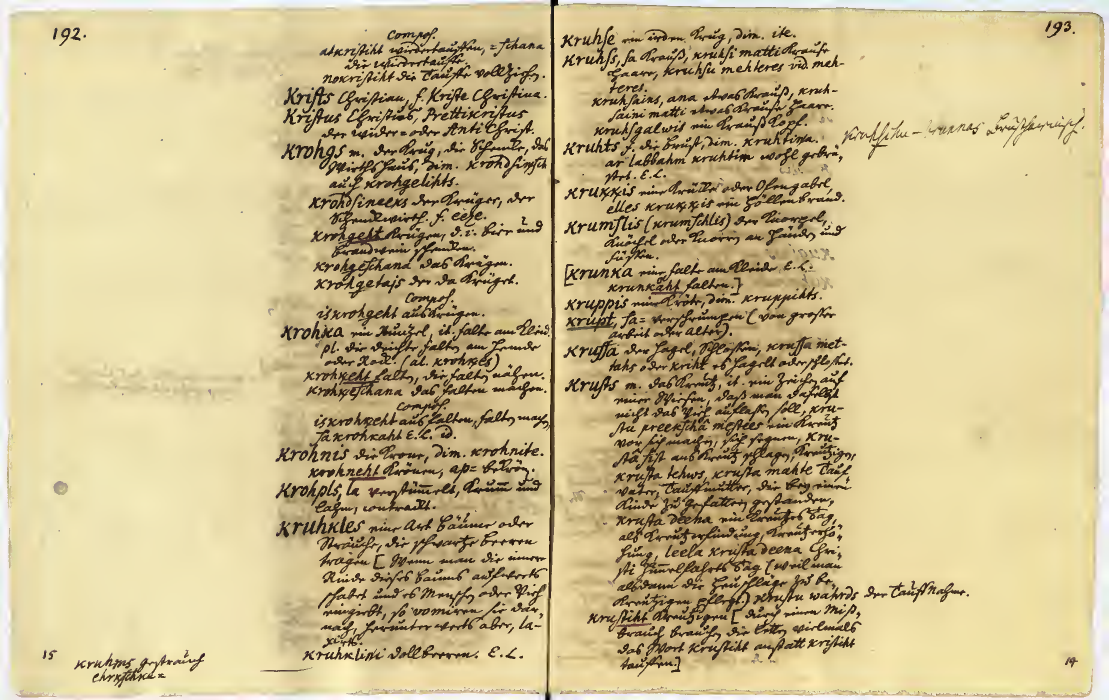 192.
Compos.
atkristiht wiedertauffen, = schana
die wiedertauffe
nokristiht die Tauffe vollziehn.
Krists Christian, f. Kriste Christina.
Kristus Christus, Prettikristus
der wieder= oder Anti Christ.
Krohgs m. der Krug, die Schenke, das
Wirths Haus, dim. krohdsinsch
auch krohgelihts.
krohdsineeks der Krüger, der
Schenkwirth. f. eeze.
krohgeht Krügen, d. i. bier und
brandwein schenken.
krohgeschana das Krügen.
krohgetajs der da Krüget.
Compos.
iskrohgeht auskrügen.
Krohka ein Runzel, it. falte am Kleid.
pl. die dichte falten am Hemde
oder Rock. (al. krohkes)
krohkeht falten, die falten nähen.
krohkeschana das falten machen.
Compos.
iskrohkeht aus falten, falten mach,
sakrohkaht E. L. id.
Krohnis die Krone, dim. krohnite.
krohneht Krönen, ap= bekrön.
Krohpls, la verstümmelt, Krumm und
lahm, contract.
Kruhkles eine Art bäume oder
Sträuche, die schwartze beeren
tragen [Wenn man die innere
Rinde dieses baums aufwerts
schabet und es Menschen oder Vieh
eingiebt, so vomiren sie dar,
nach, herunterwerts aber, la-
xirts.
kruhklini Dollbeeren. E. L.
15
kruhms gesträuch
193.
Kruhse ein irden Krug, dim. ite.
Kruhss, sa Krauß, kruhsi matti Krause
Haare, kruhsu mehteres vid. meh-
teres.
kruhsains, ana etwas Krauß, kruh-
saini matti etwas Krause Haare.
kruhsgalwis ein Krauß Kopf.
Kruhts f. die brust, dim. kruhtina.
ar labbahm kruhtim wohl gebrü,
stet. E. L.
Krukkis eine Krücke oder Ofengabel,
elles krukkis ein Höllenbrand.
Krumslis (krumschlis) der Knorpel,
Knöchel oder Knorren an Händen und
Füssen.
[Krunka eine falte am Kleide E. L.
krunkaht falten.]
Kruppis eine Kröte, dim. kruppihts.
Krupt, sa= verschrumpen (von großer
arbeit oder Alter).
Krussa der Hagel, Schlossen, krussa met-
tahs oder kriht es hagelt oder schloßet.
Krusts m. das Kreutz, it. ein Zeichen auf
einer Wiesen, daß man daselbst
nicht das Vieh auflassen soll, kru-
stu preekschâ mestees ein Kreutz
vor sich machen, sich segnen, kru-
stâ sist ans Kreutz schlagen, Kreutzigen,
krusta tehws, krusta mahte Tauf
vater, Taufmutter, die bey einem
Kinde zu gefattern gestanden,
krusta deena ein Kreutzes Tag,
als Kreutz erfindung, Kreutz erhö-
hung, leela krusta deena Chri-
sti Himmelfahrts Tag (weil man
alsdann die Heuschläge zu be
Kreutzigen pflegt.) krustu wahrds der Tauff Nahme.
krustiht Kreutzigen [durch einen Miß,
brauch brauchen die Letten vielmals
das Wort krustiht anstatt kristiht
tauffen.]